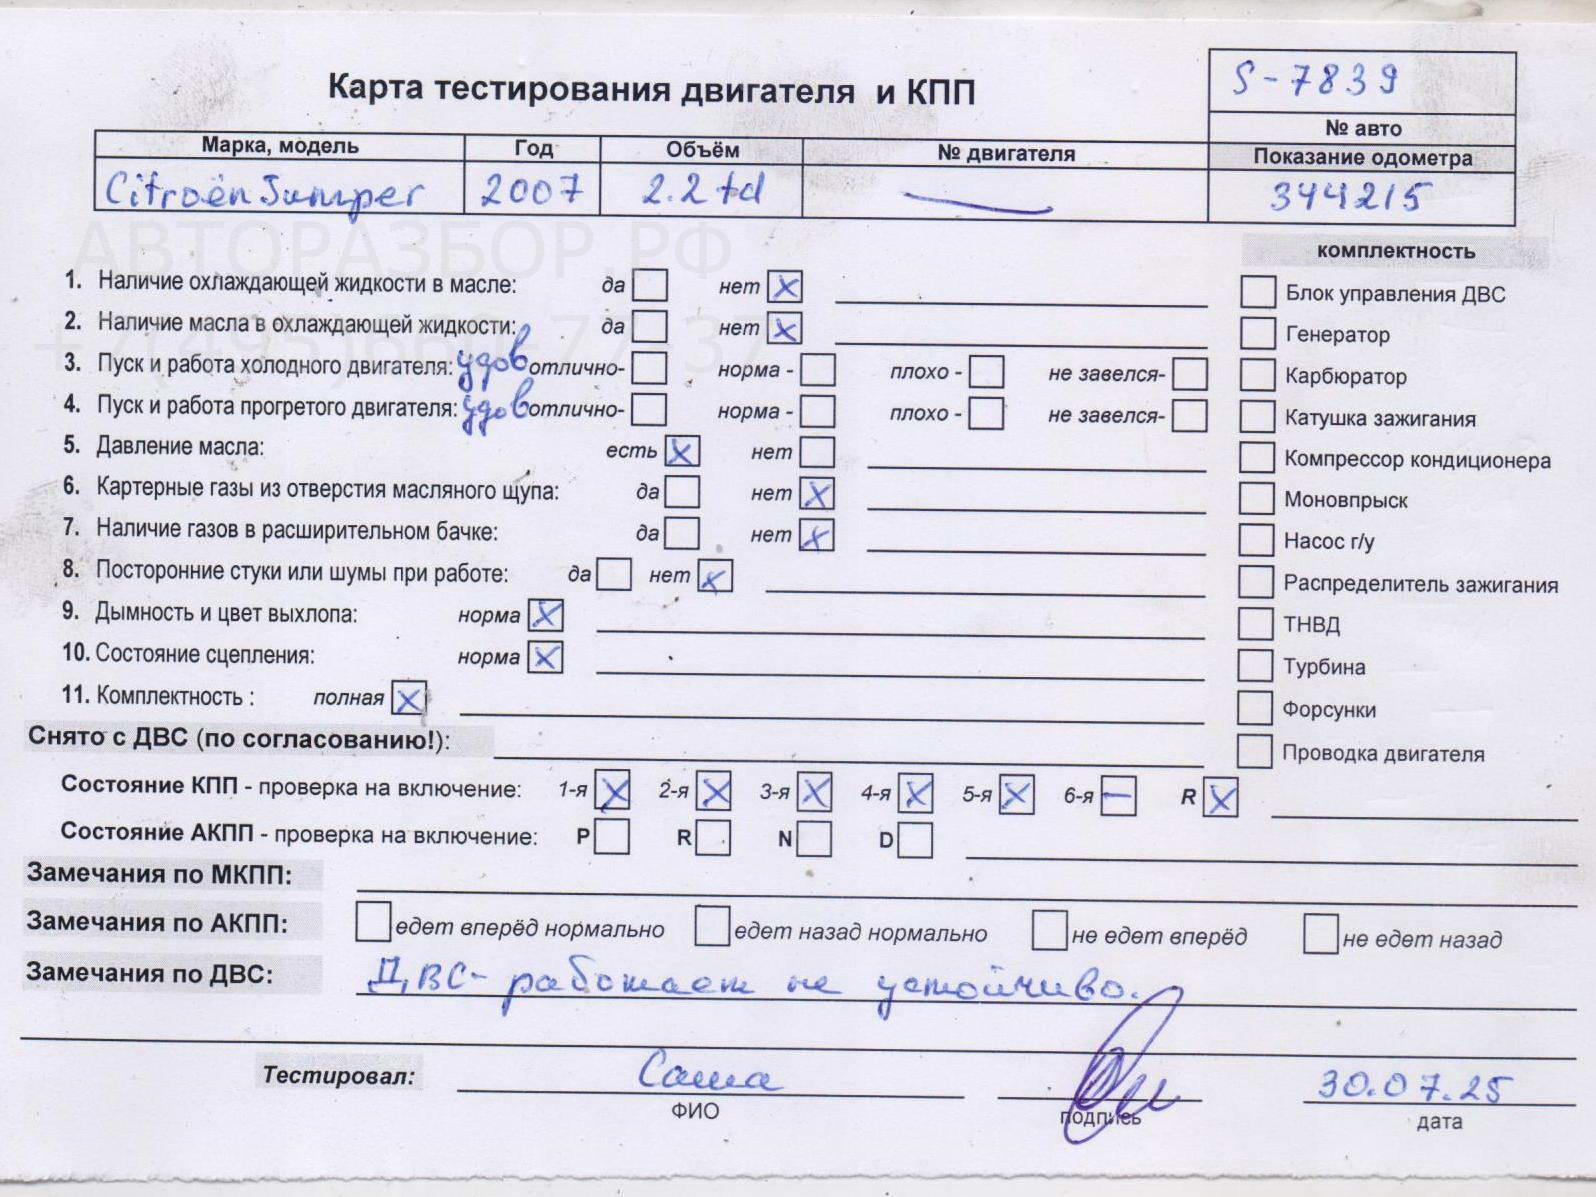 Карта тестирования двигателя и КПП
S-7839
№ авто
Марка, модель Год Объём № двигателя Показание одометра
Citroёn Jumper 2007 2.2 td — 344215
АВТОРАЗБОР.РФ
+7(495)660-77-37
комплектность
1. Наличие охлаждающей жидкости в масле: да нет X Блок управления ДВС
2. Наличие масла в охлаждающей жидкости: да нет X Генератор
3. Пуск и работа холодного двигателя: удов отлично- норма - плохо - не завелся- Карбюратор
4. Пуск и работа прогретого двигателя: удов отлично- норма - плохо - не завелся- Катушка зажигания
5. Давление масла: есть X нет Компрессор кондиционера
6. Картерные газы из отверстия масляного щупа: да нет X Моновпрыск
7. Наличие газов в расширительном бачке: да нет X Насос г/у
8. Посторонние стуки или шумы при работе: да нет X Распределитель зажигания
9. Дымность и цвет выхлопа: норма X ТНВД
10. Состояние сцепления: норма X Турбина
11. Комплектность : полная X Форсунки
Снято с ДВС (по согласованию!): Проводка двигателя
Состояние КПП - проверка на включение: 1-я X 2-я X 3-я X 4-я X 5-я X 6-я — R X
Состояние АКПП - проверка на включение: P R N D
Замечания по МКПП:
Замечания по АКПП: едет вперёд нормально едет назад нормально не едет вперёд не едет назад
Замечания по ДВС: ДВС- работает не устойчиво.
Тестировал: Саша 30.07.25
ФИО подпись дата